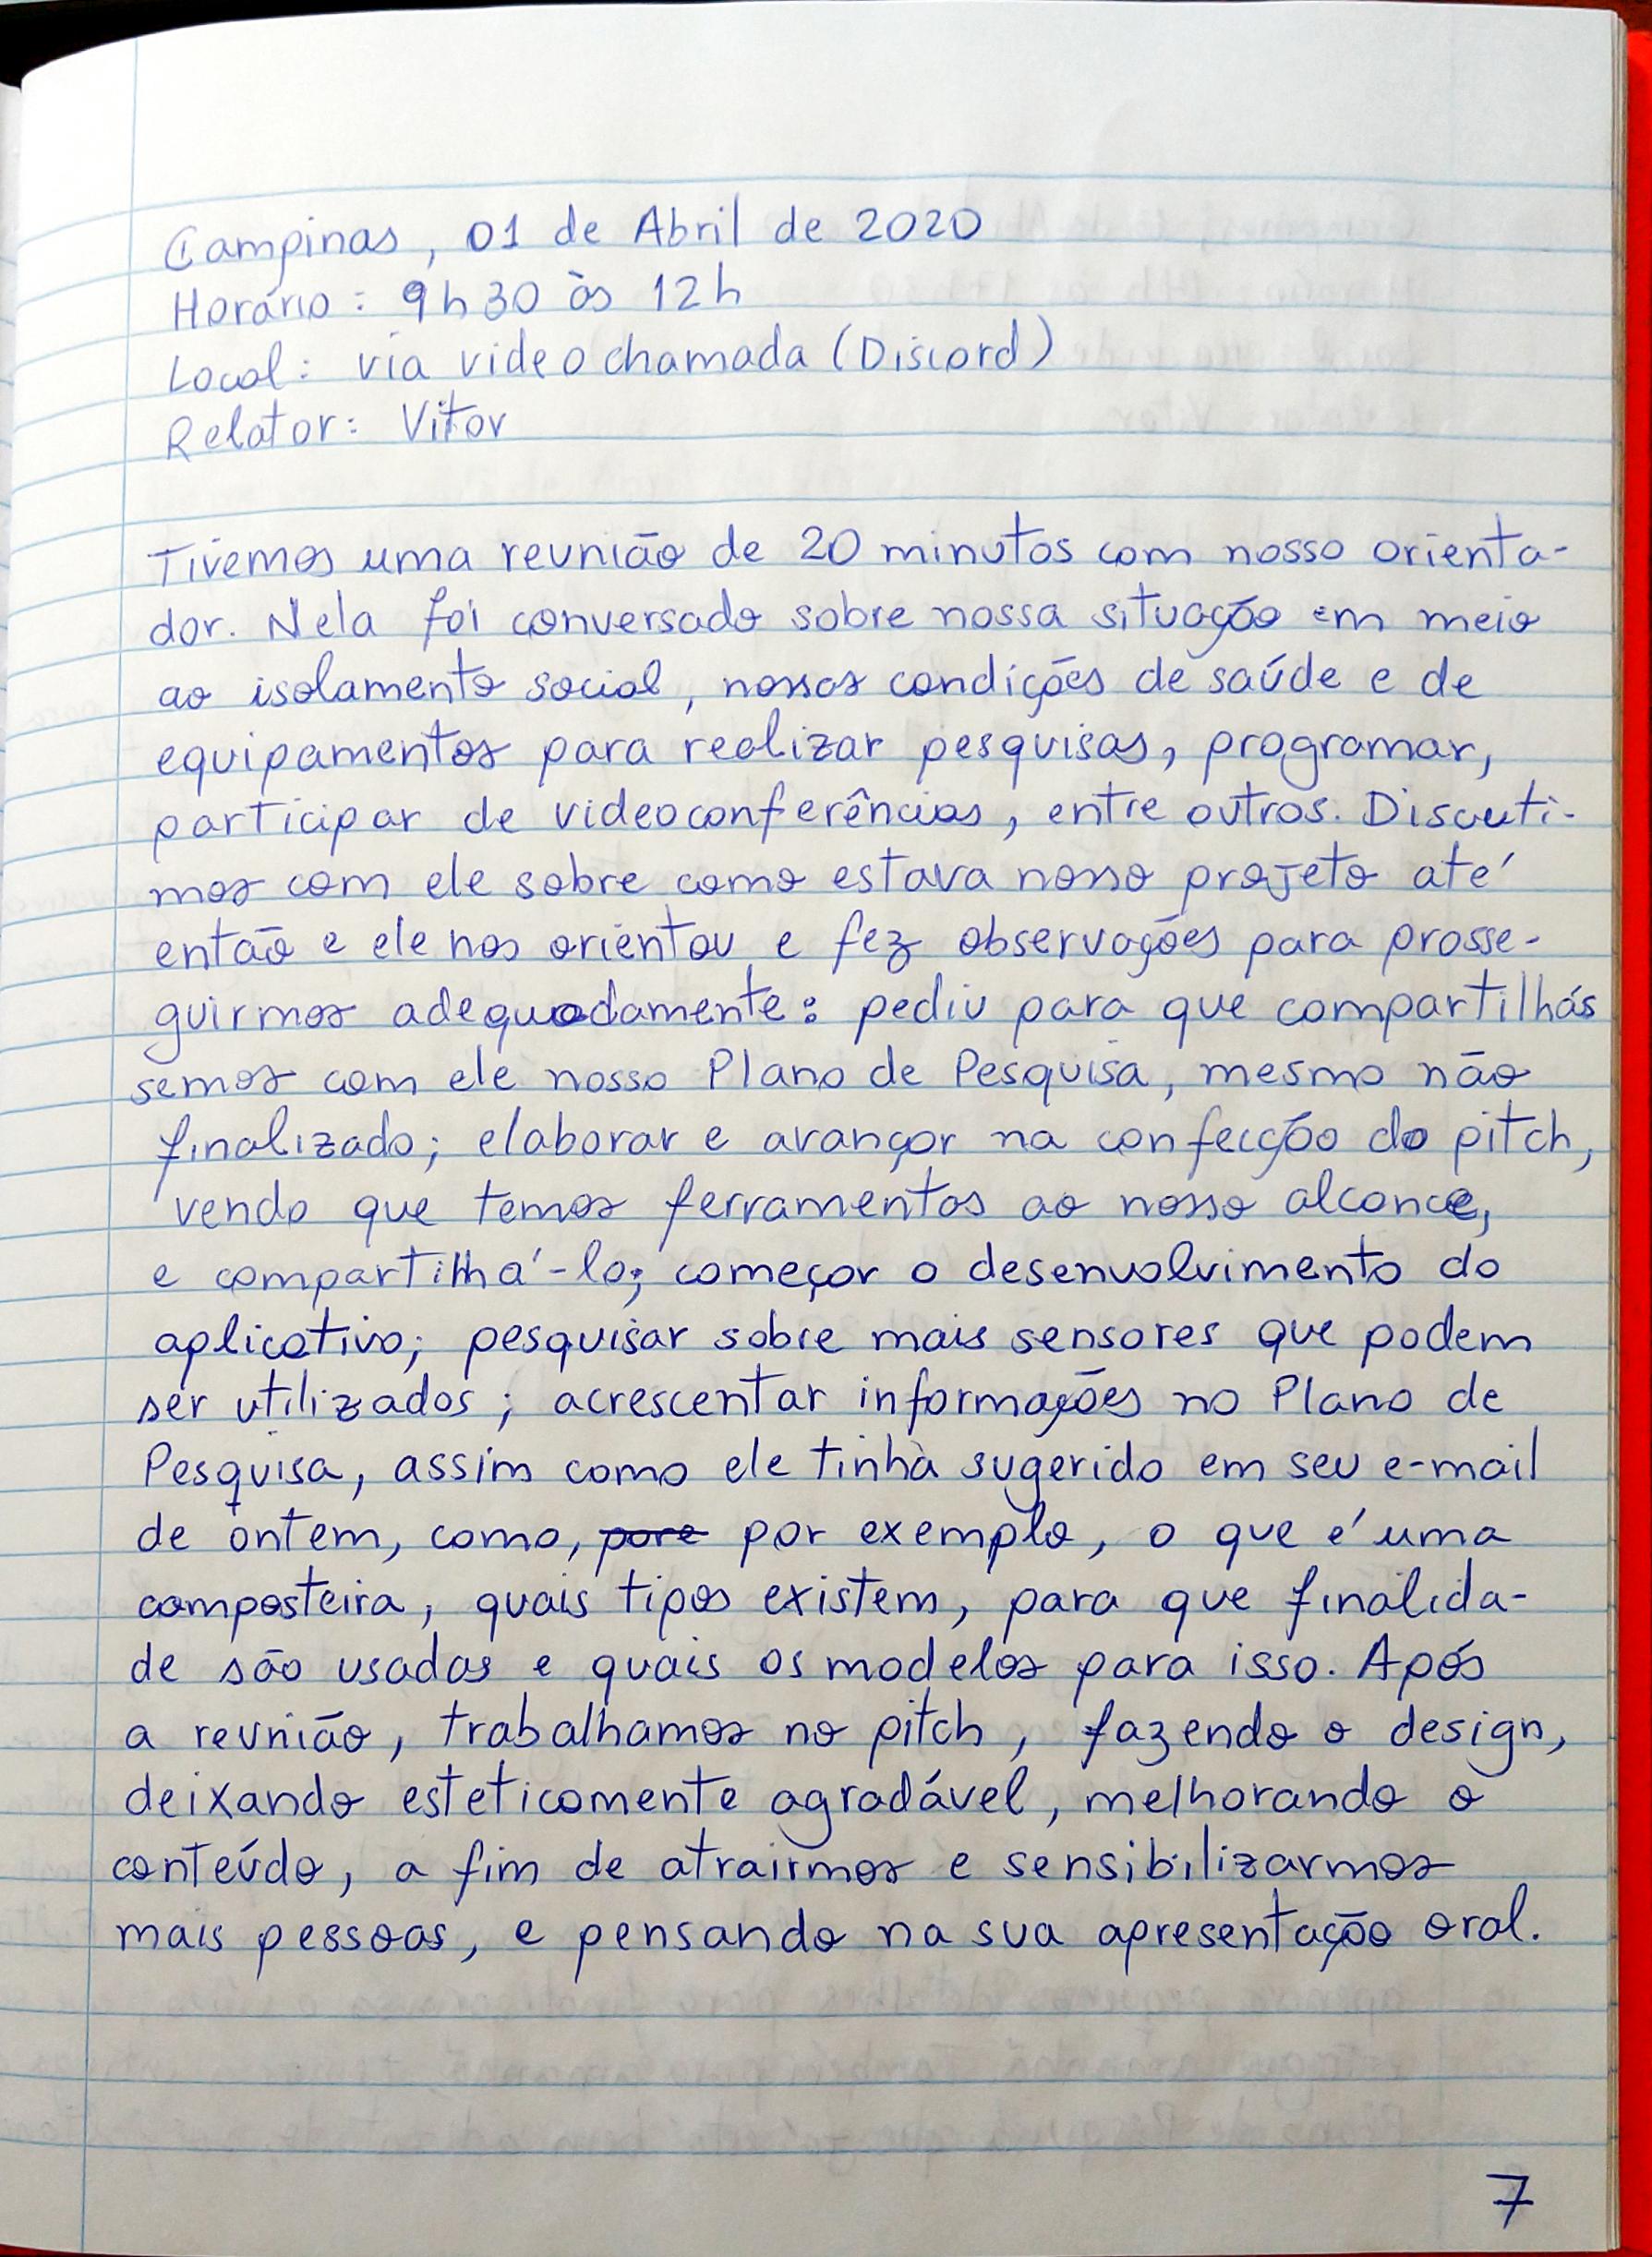 Campinas, 01 de Abril de 2020
Horário: 9h30 às 12h
Local: via videochamada (Discord)
Relator: Vitor
Tivemos uma reunião de 20 minutos com nosso orienta-
dor. Nela foi conversado sobre nossa situação em meio
ao isolamento social, nossas condições de saúde e de
equipamentos para realizar pesquisas, programar,
participar de videoconferências, entre outros. Discuti-
mos com ele sobre como estava nosso projeto até
então e ele nos orientou e fez observações para prosse-
guirmos adequadamente: pediu para que compartilhás
semos com ele nosso Plano de Pesquisa, mesmo não
finalizado; elaborar e avançar na confecção do pitch,
vendo que temos ferramentas ao nosso alcance,
e compartilhá-lo; começar o desenvolvimento do
aplicativo; pesquisar sobre mais sensores que podem
ser utilizados; acrescentar informações no Plano de
Pesquisa, assim como ele tinha sugerido em seu e-mail
de ontem, como, pore por exemplo, o que é uma
composteira, quais tipos existem, para que finalida-
de são usadas e quais os modelos para isso. Após
a reunião, trabalhamos no pitch, fazendo o design,
deixando esteticamente agradável, melhorando o
conteúdo, a fim de atrairmos e sensibilizarmos
mais pessoas, e pensando na sua apresentação oral.
7